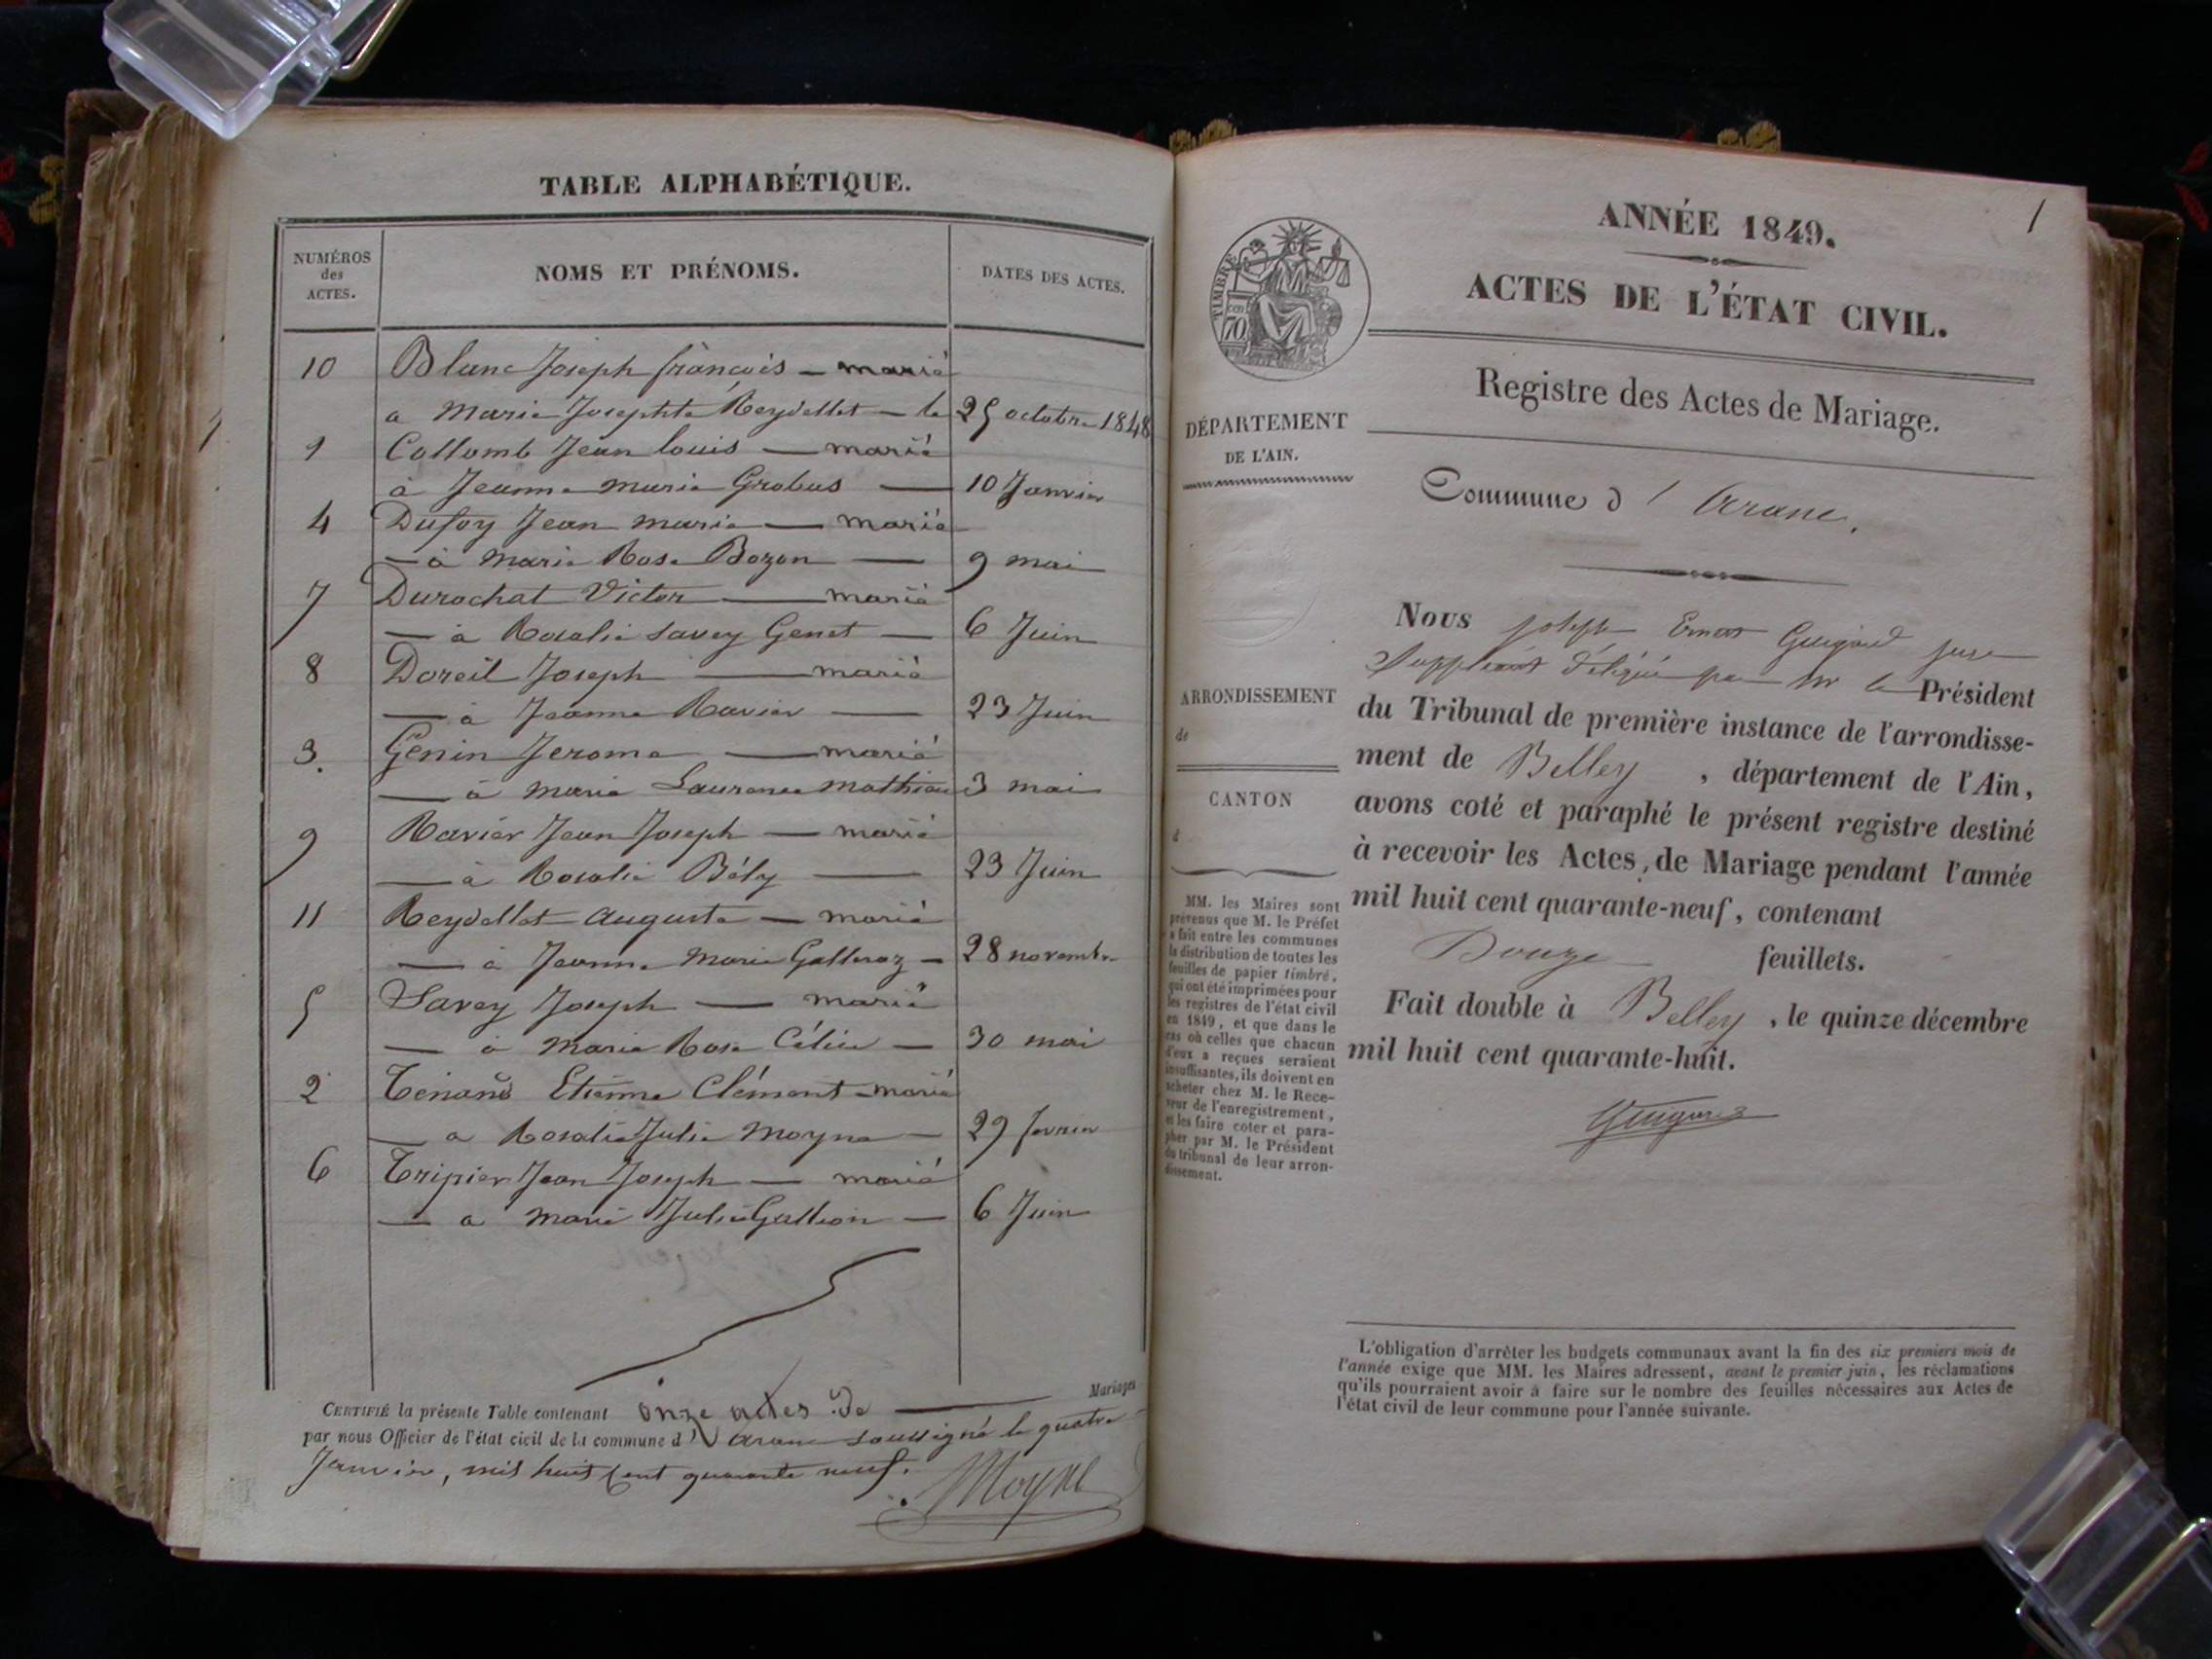 TABLE ALPHABÉTIQUE.
NUMÉROS
des
ACTES.
NOMS ET PRÉNOMS.
DATES DES ACTES.
10 Blanc Joseph françois — marié
a Marie Josephte Reydellet — le 25 octobre 1848
1 Collomb Jean louis — marié
à Jeanne marie Grobas — 10 Janvier
4 Dufoy Jean marie — marié
— à Marie Rose Bozon — 9 mai
7 Durochat Victor — marié
— à Rosalie Savey Genet — 6 Juin
8 Doreil Joseph — marié
— à Jeanne Ravier — 23 Juin
3. Génin Jerome — marié
— à marie Laurence mathieu 3 mai
9 Ravier Jean Joseph — marié
— à Rosalie Bély — 23 Juin
11 Reydellet auguste — marié
— à Jeanne Marie Galleraz — 28 novembre
5 Savey Joseph — marié
— à marie Rose Célin — 30 mai
2 Tenand Etienne Clément — marié
— a Rosalie Julie moyne — 29 fevrier
6 Tripier Jean Joseph — marié
— a marie Julie Gallion — 6 Juin
CERTIFIÉ la présente Table contenant onze actes de — Mariages
par nous Officier de l'état civil de la commune d' arane soussigné le quatre
Janvier, mil huit cent quarante neuf.
Moyne
1
ANNÉE 1849.
ACTES DE L'ÉTAT CIVIL.
TIMBRE
70
Registre des Actes de Mariage.
DÉPARTEMENT
DE L'AIN.
Commune d' Aranc.
Nous joseph Ernest Guigard juge
Suppléant délégué par Mr le Président
du Tribunal de première instance de l'arrondisse-
ment de Belley, département de l'Ain,
avons coté et paraphé le présent registre destiné
à recevoir les Actes de Mariage pendant l'année
mil huit cent quarante-neuf, contenant
Douze feuillets.
Fait double à Belley, le quinze décembre
mil huit cent quarante-huit.
Guigard
ARRONDISSEMENT
de
CANTON
d
MM. les Maires sont
prévenus que M. le Préfet
a fait entre les communes
la distribution de toutes les
feuilles de papier timbré,
qui ont été imprimées pour
les registres de l'état civil
en 1849, et que dans le
cas où celles que chacun
d'eux a reçues seraient
insuffisantes, ils doivent en
acheter chez M. le Rece-
veur de l'enregistrement,
et les faire coter et para-
pher par M. le Président
du tribunal de leur arron-
dissement.
L'obligation d'arrêter les budgets communaux avant la fin des six premiers mois de
l'année exige que MM. les Maires adressent, avant le premier juin, les réclamations
qu'ils pourraient avoir à faire sur le nombre des feuilles nécessaires aux Actes de
l'état civil de leur commune pour l'année suivante.